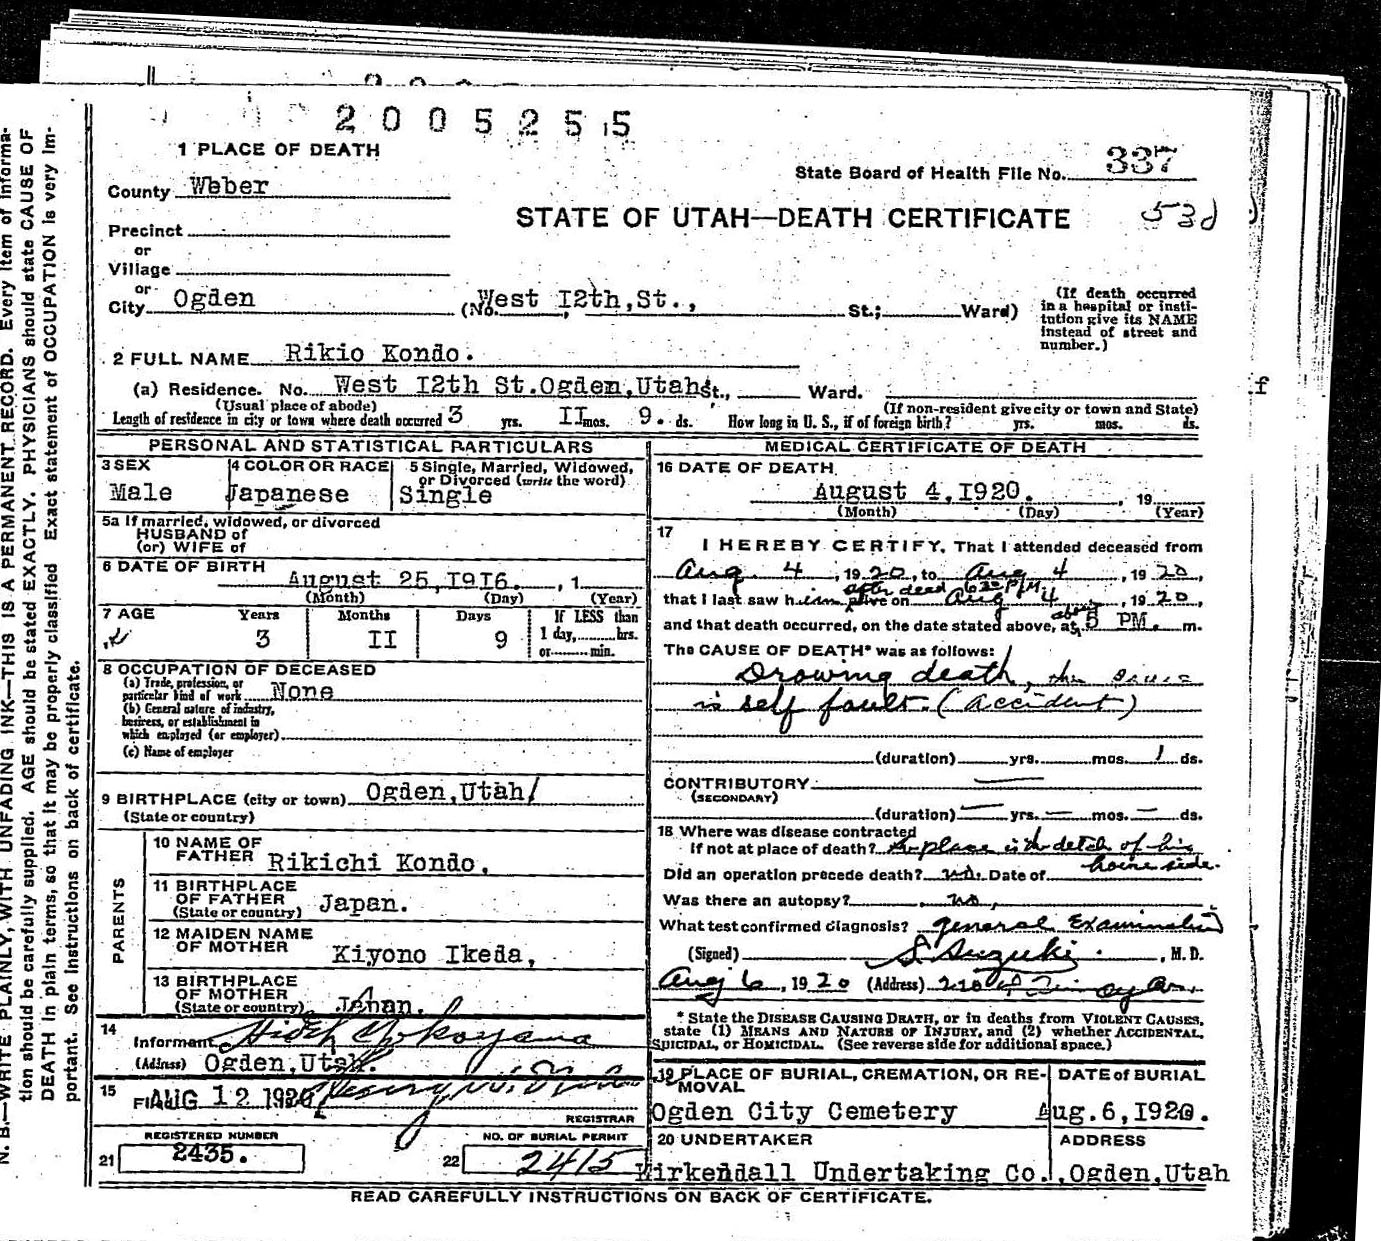 2005255
1 PLACE OF DEATH
State Board of Health File No. 337
County Weber
53d
STATE OF UTAH—DEATH CERTIFICATE
Precinct
or
Village
or
City Ogden (No. West I2th,St., St.; Ward)
(If death occurred in a hospital or insti-
tution give its NAME
instead of street and
number.)
2 FULL NAME Rikio Kondo.
(a) Residence. No. West I2th St.Ogden,Utah St., Ward.
(Usual place of abode) (If non-resident give city or town and State)
Length of residence in city or town where death occurred 3 yrs. II mos. 9. ds. How long in U. S., if of foreign birth? yrs. mos. ds.
PERSONAL AND STATISTICAL PARTICULARS
3 SEX 4 COLOR OR RACE 5 Single, Married, Widowed,
or Divorced (write the word)
Male Japanese Single
5a If married, widowed, or divorced
HUSBAND of
(or) WIFE of
6 DATE OF BIRTH
August 25,I9I6. , 1
(Month) (Day) (Year)
7 AGE Years Months Days If LESS than
1 day, hrs.
or min.
3 II 9
8 OCCUPATION OF DECEASED
(a) Trade, profession, or
particular kind of work None
(b) General nature of industry,
business, or establishment in
which employed (or employer)
(c) Name of employer
9 BIRTHPLACE (city or town) Ogden,Utah/
(State or country)
PARENTS
10 NAME OF
FATHER Rikichi Kondo.
11 BIRTHPLACE
OF FATHER
(State or country) Japan.
12 MAIDEN NAME
OF MOTHER Kiyono Ikeda,
13 BIRTHPLACE
OF MOTHER
(State or country) Japan.
14
Informant
(Address) Ogden,Utah.
15
AUG 12 1920
REGISTRAR
REGISTERED NUMBER NO. OF BURIAL PERMIT
21 2435. 22 2415
MEDICAL CERTIFICATE OF DEATH
16 DATE OF DEATH
August 4,I920. , 19
(Month) (Day) (Year)
17
I HEREBY CERTIFY, That I attended deceased from
Aug. 4, 1920, to Aug 4, 1920,
after dead 6:30 P.M.
that I last saw him alive on Aug 4, 1920,
and that death occurred, on the date stated above, at about 5 PM. m.
The CAUSE OF DEATH* was as follows:
Drowing death, the
is self fault. (Accident)
(duration) yrs. mos. 1 ds.
CONTRIBUTORY —
(SECONDARY)
(duration) — yrs. — mos. — ds.
18 Where was disease contracted
If not at place of death? the place is the detch of his
home side.
Did an operation precede death? no. Date of
Was there an autopsy? no,
What test confirmed diagnosis? general Examination
(Signed) S. Suzuki. , M. D.
Aug 6, 1920 (Address)
* State the DISEASE CAUSING DEATH, or in deaths from VIOLENT CAUSES,
state (1) MEANS AND NATURE OF INJURY, and (2) whether ACCIDENTAL,
SUICIDAL, or HOMICIDAL. (See reverse side for additional space.)
19 PLACE OF BURIAL, CREMATION, OR RE-
MOVAL
DATE of BURIAL
Ogden City Cemetery Aug.6,1920.
20 UNDERTAKER ADDRESS
Kirkendall Undertaking Co.,Ogden,Utah
READ CAREFULLY INSTRUCTIONS ON BACK OF CERTIFICATE.
N. B.—WRITE PLAINLY, WITH UNFADING INK—THIS IS A PERMANENT RECORD. Every item of informa-
tion should be carefully supplied. AGE should be stated EXACTLY. PHYSICIANS should state CAUSE OF
DEATH in plain terms, so that it may be properly classified. Exact statement of OCCUPATION is very im-
portant. See instructions on back of certificate.